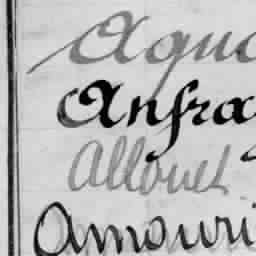 Aguc
Anfra
Allouet
Amouri